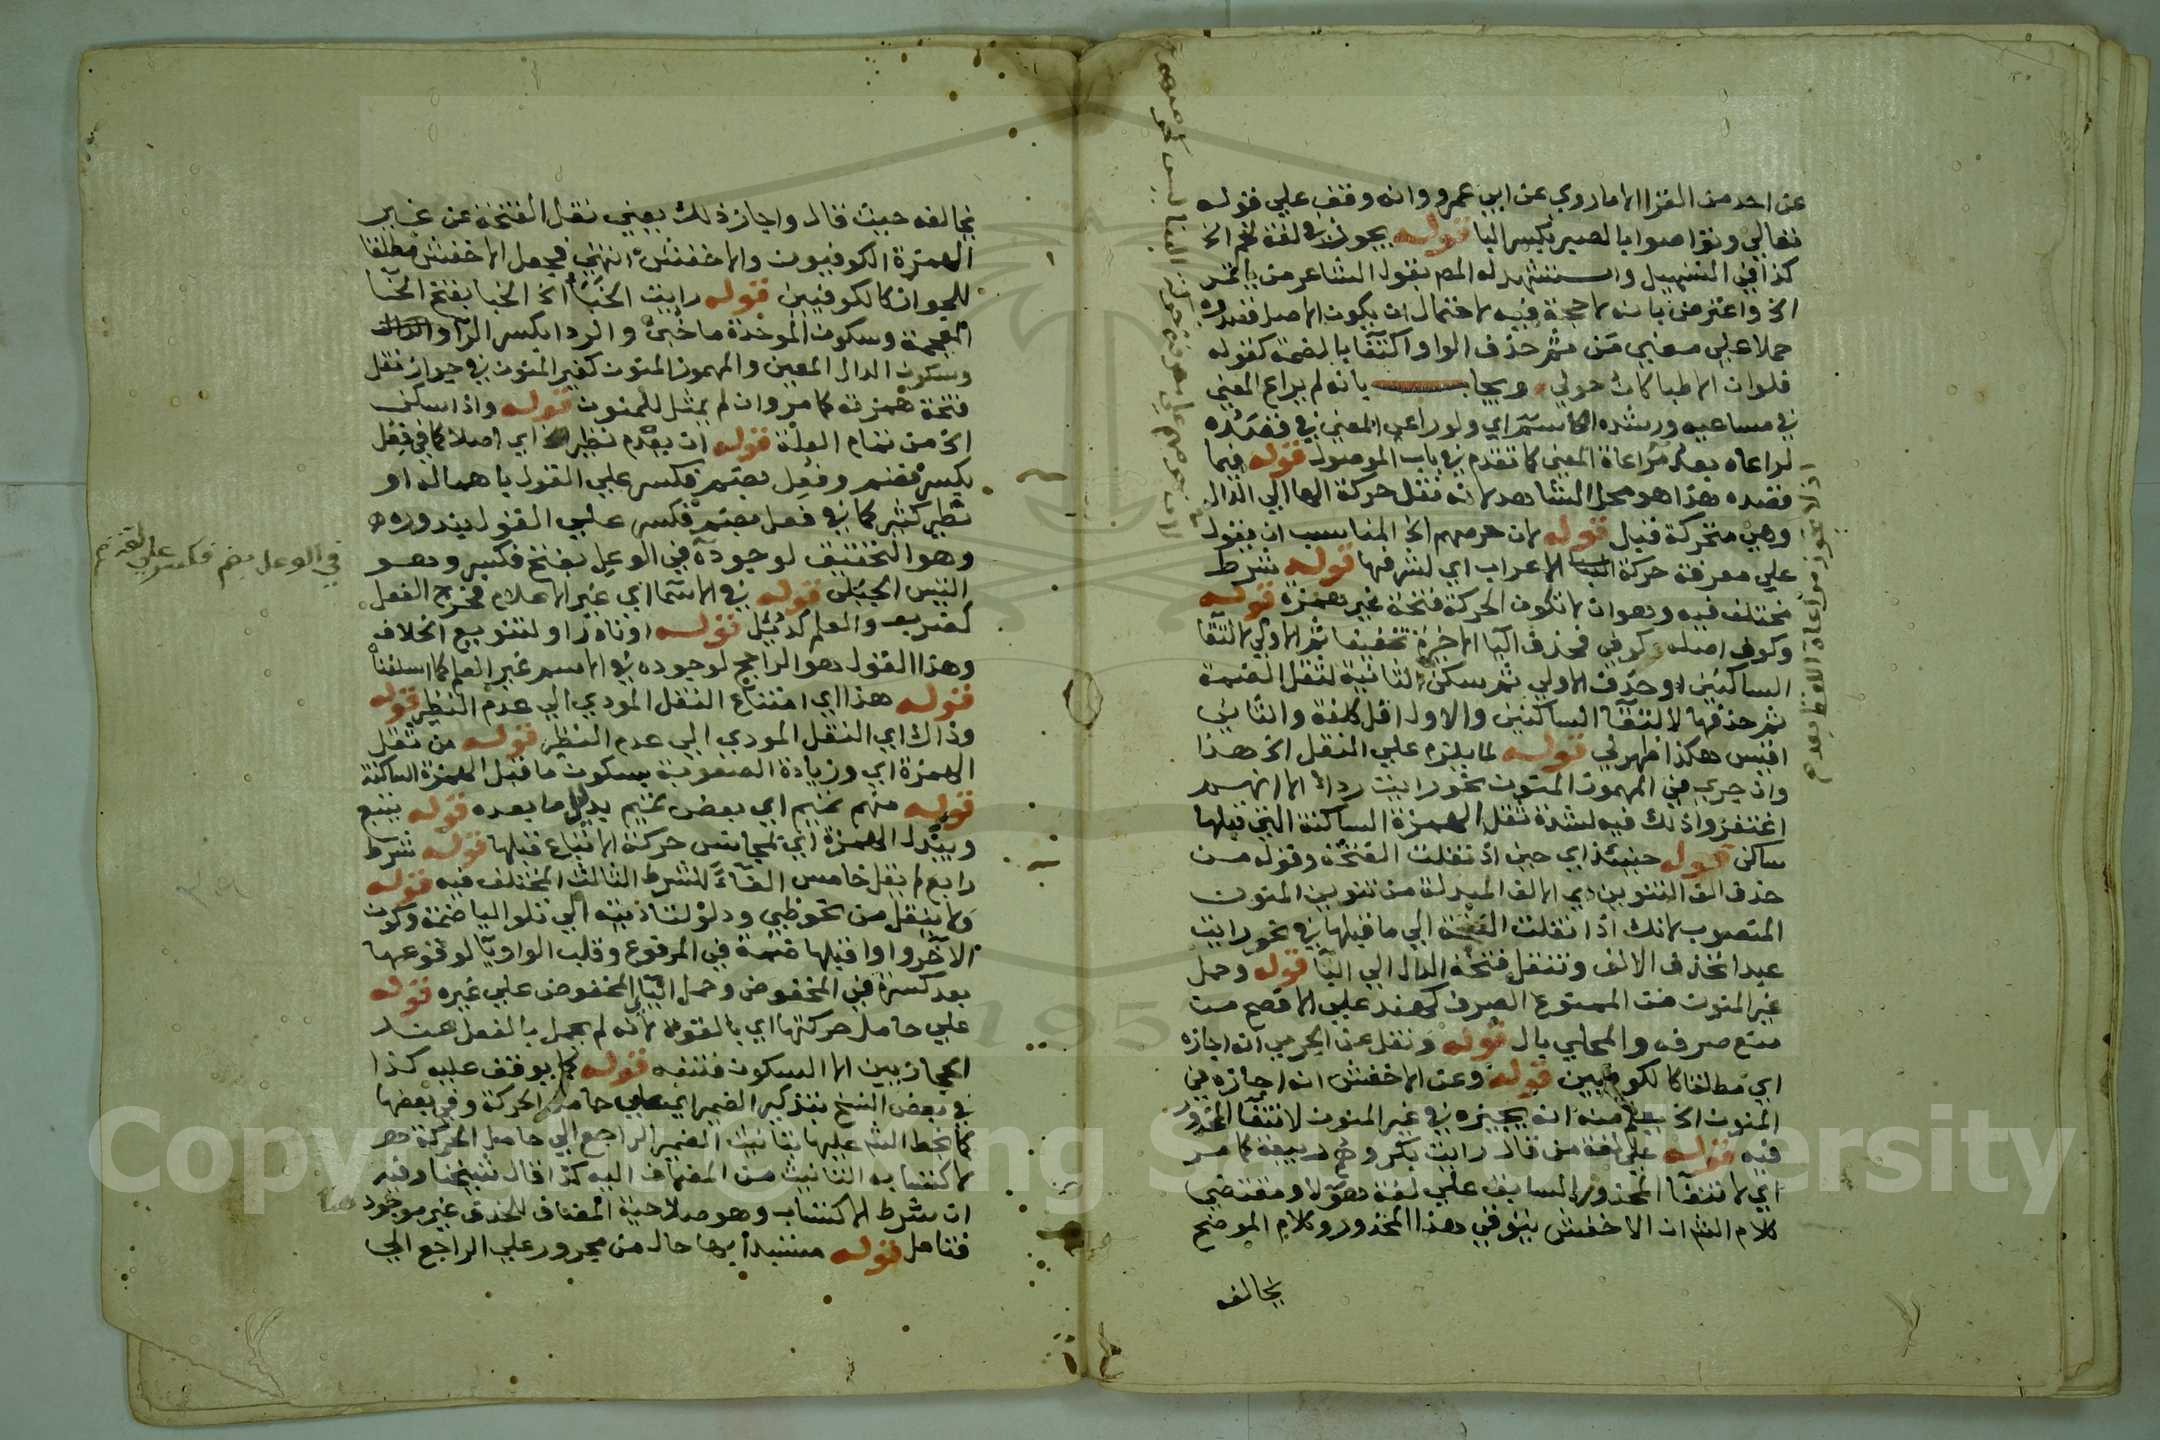 عن احد من القرا الا ما روي عن ابي عمرو وانه وقف علي قوله
تعالي وتواصوا بالصبر بكسر البا قوله يجوز في لغة لخم الخ
كذا في التسهيل واستشهد له المص بقول الشاعر من ياتمر
الخ واعترض بانه لا حجة فيه لاحتمال ان يكون الاصل قصدوه
حملا علي معني مَن ثم حذف الواو اكتفا بالضمة كقوله
فلو ان الاطبا كان حولي ويجاب بانه لم يراع المعني
في مساعيه ورشده ولو راعي المعني في قصده
لراعاه بعد مراعاة المعني كما تقدم في باب الموصول قوله فيما
قصده هذا هو محل الشاهد لانه نقل حركة الها الي الدال
وهي متحركة قبل قوله لان حرصهم الخ المناسب ان يقول
علي معرفة حركة الاعراب اي لشرفها قوله شرط
مختلف فيه وهو ان لا تكون الحركة فتحة غير همزة قوله
وكوف اصله كوفي فحذف اليا الاخيرة تخفيفا ثم الاولي لالتقا
الساكنين او حذف الاولي ثم سكن الثانية لثقل الضمة
ثم حذفها لالتقا الساكنين والاول اقل كلفة والثاني
اقيس هكذا ظهر لي قوله لما يلزم علي النقل الخ هذا
وان جري في المهموز المنون نحو رايت ردا الا انهم
اغتفروا ذلك فيه لشدة ثقل الهمزة الساكنة التي قبلها
ساكن قوله حينئذ اي حين اذ نقلت الفتحة وقوله من
حذف الف التنوين اي الالف المبدلة من تنوين المنون
المنصوب لانك اذا نقلت الفتحة الي ما قبلها في نحو رايت
عبدا تحذف الالف وتنقل فتحة الدال الي البا قوله وحمل
غير المنون من الممنوع الصرف كهند علي الافصح من
منع صرفه والمحلي بال قوله ونقل عن الجرمي انه اجازه
اي مطلقا كالكوفيين قوله وعن الاخفش انه اجازه في
المنون الخ يعلم منه انه يجيزه في غير المنون لانتفا المحذور
فيه قوله علي لغة من قال رايت بكر وهم ربيعة كما مر
اي لانتفا المحذور السابق علي لغة هولا ومقتضي
كلام الش ان الاخفش في هذا المحذور وكلام الموضح
يخالفه
يخالفه حيث قال واجاز ذلك يعني نقل الفتحة عن غير
الهمزة الكوفيون والاخفش انتهي فجعل الاخفش مطلقا
للجواز كالكوفيين قوله رايت الخبأ الخ الخبا بفتح الخا
المعجمة وسكون الموحدة ما خبئ والردا بكسر الرا
وسكون الدال المعين والمهموز المنون كغير المنون في جواز نقل
فتحة همزته كما مر وان لم يمثل للمنون قوله واذ اسكن
الخ من تمام العلة قوله ان يعدم نظير اي اصلا كما في فِعُل
بكسر فضم وفُعِل بضم فكسر علي القول باهماله او
نظير كثير كما في فعل بضم فكسر علي القول بندوره
وهو التحقيق لوجوده في الوعل بفتح فكسر وهو
التيس الجبلي قوله في الاسما اي غير الاعلام فخرج الفعل
كضرب والعلم كدُئِل قوله او نادر او لتنويع الخلاف
وهذا القول هو الراجح لوجوده في الاسم غير العلم كما اسلفنا
قوله هذا اي امتناع النقل المودي الي عدم النظر قوله
وذاك اي النقل المودي الي عدم النظر قوله من ثقل
الهمزة اي وزيادة الصعوبة بسكون ما قبل الهمزة الساكنة
قوله منهم تميم اي بعض تميم بدليل ما بعده قوله يتبع
ويبدل الهمزة اي بمجانس حركة الاتباع قبلها قوله شرط
رابع لم يقل خامس الغاءً للشرط الثالث المختلف فيه قوله
ولا ينقل من نحو ظبي ودلو لتاديته الي تلو اليا ضمة وكون
الآخر واوا قبلها ضمة في المرفوع وقلب الواو يا لوقوعها
بعد كسرة في المخفوض وحمل المخفوض علي غيره قوله
علي حامل حركتها اي بالقوة لانه لم يحمل بالفعل عند
الحجازيين الا السكون فتنبه قوله كما يوقف عليه كذا
في بعض النسخ بتذكير الضمير اي علي حامل الحركة وفي بعضها
كما بخط الش عليها بتانيث الضمير الراجع الي حامل الحركة
لاكتسابه التانيث من المضاف اليه كذا قال شيخنا وفيه
ان شرط الاكتساب وهو صلاحية المضاف للحذف غير موجود هنا
فتامل قوله مستبدا بها حال من مجرور علي الراجع الي